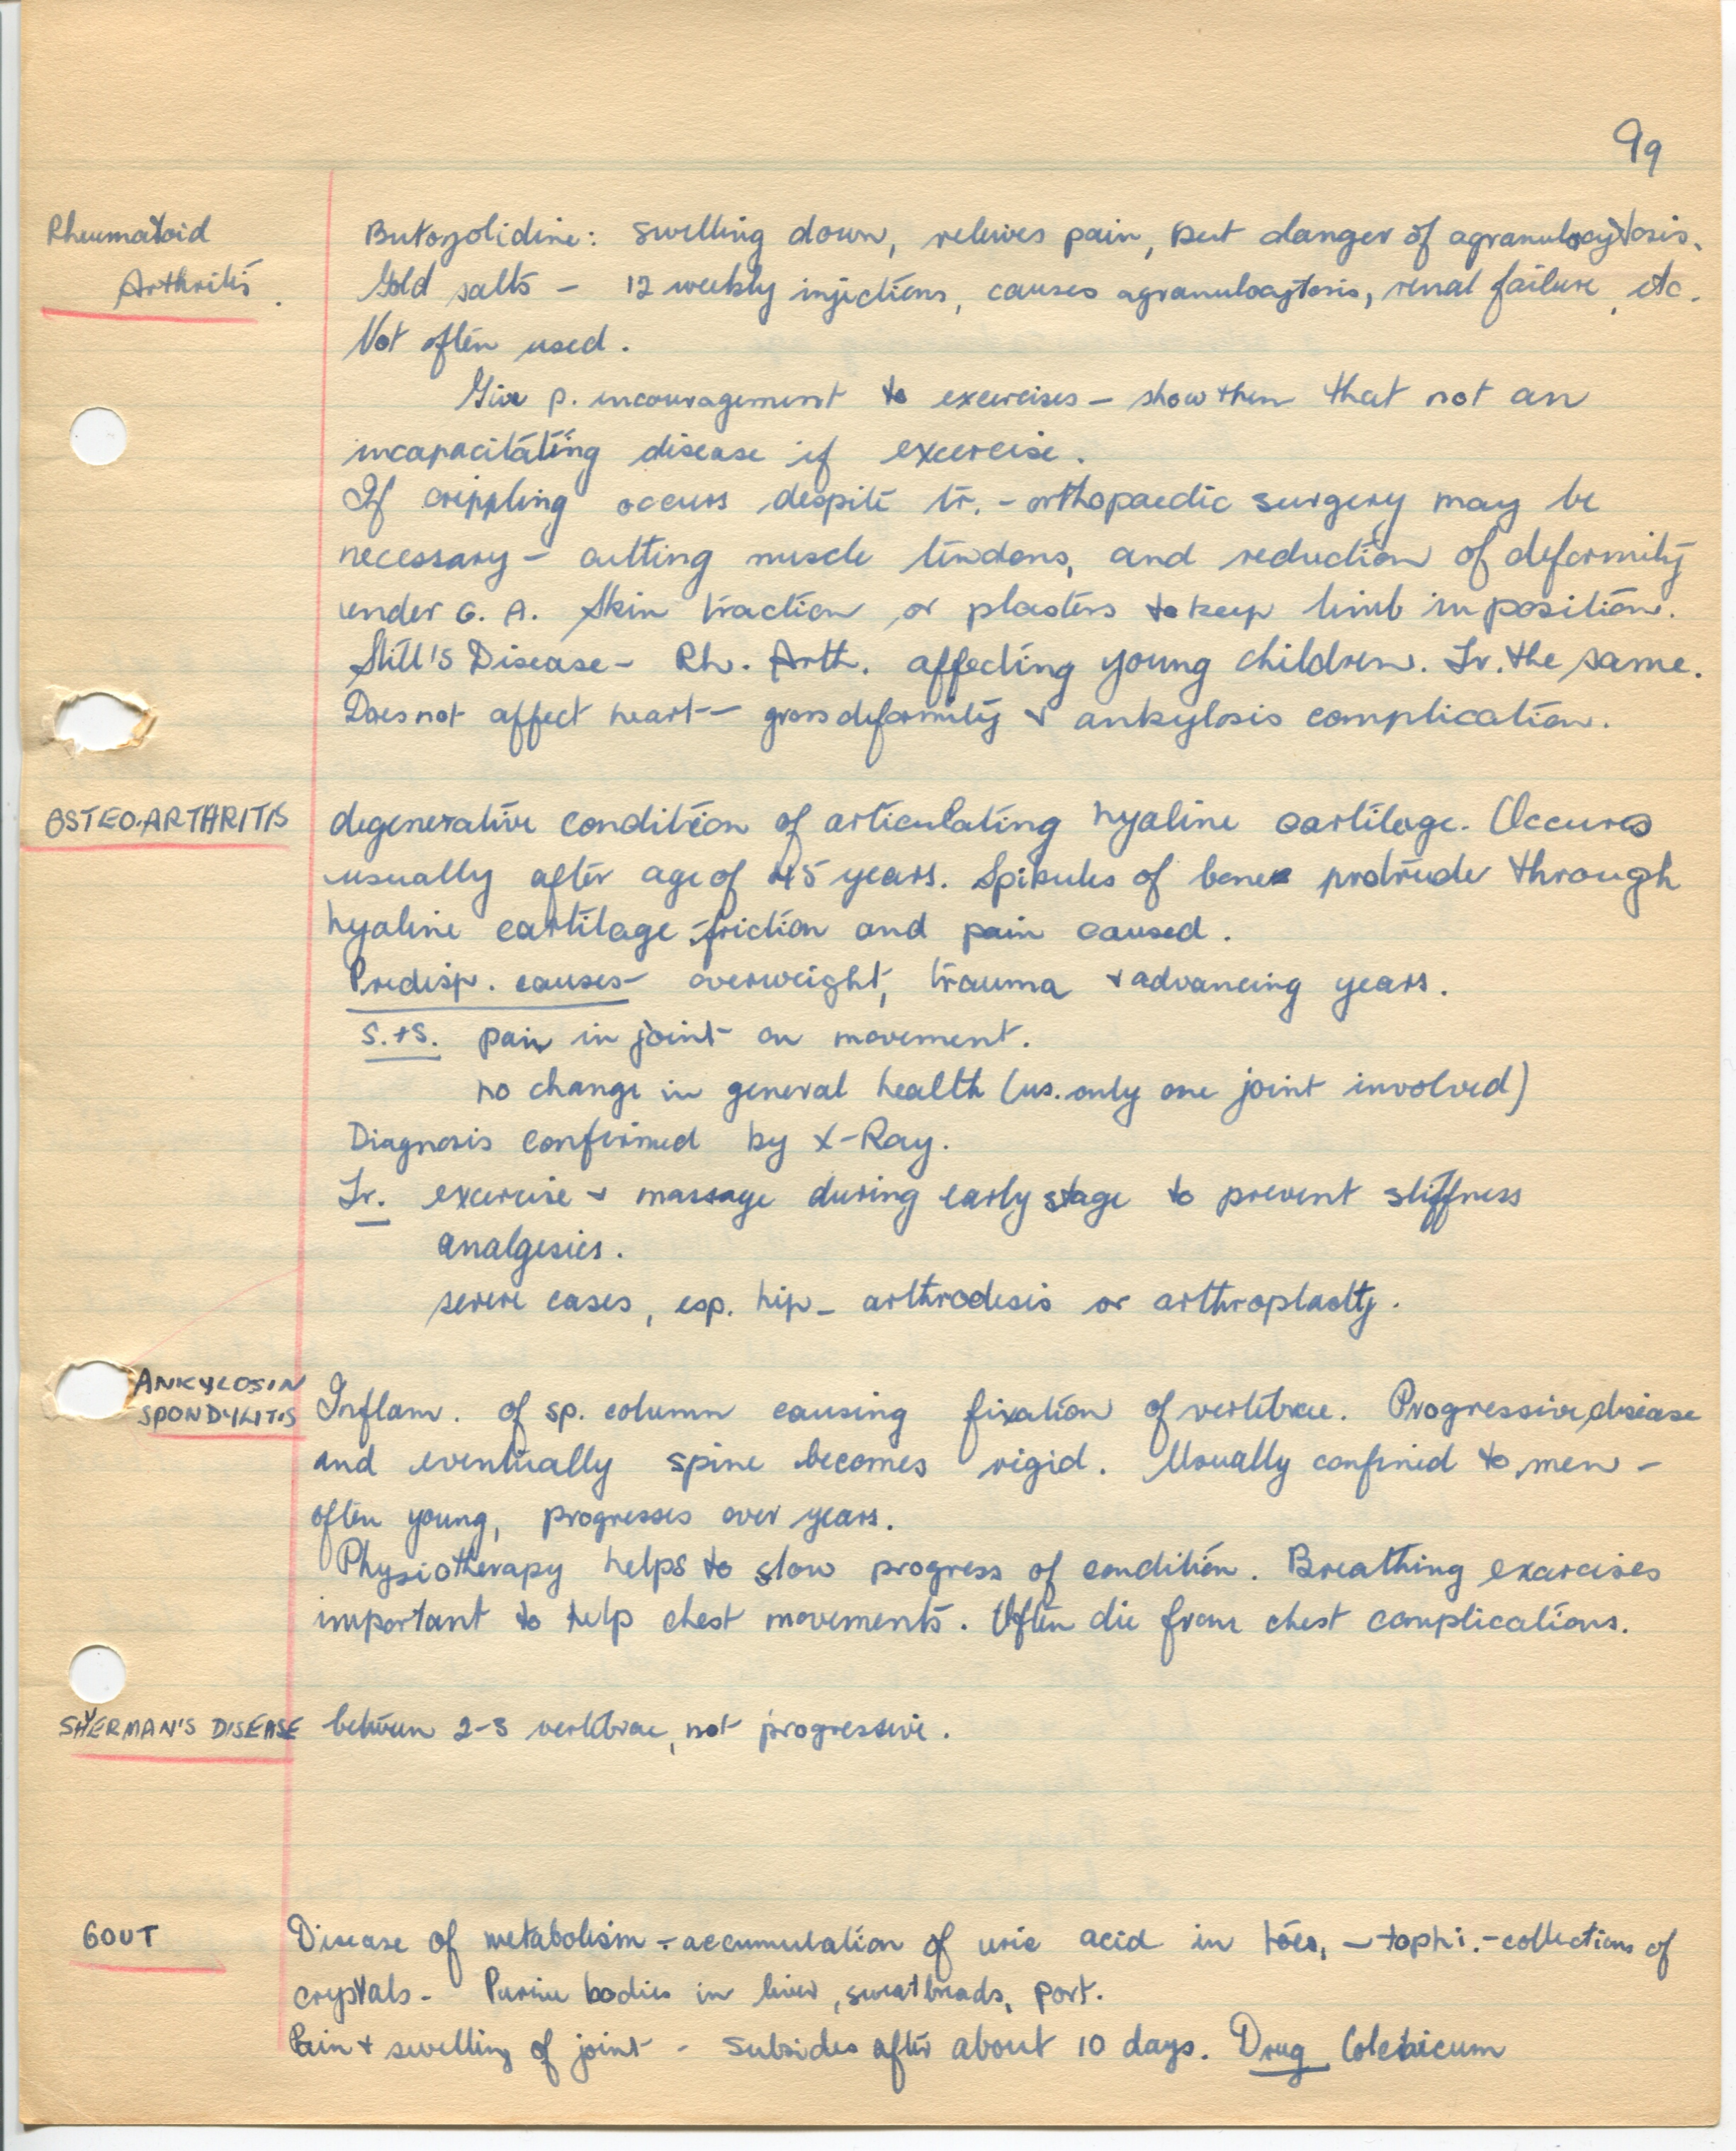 99
Rheumatoid
Arthritis.
Butozolidine: swelling down, relieves pain, but danger of agranulocytosis.
Gold salts - 12 weekly injections, causes agranulocytosis, renal failure, etc.
Not often used.
Give p. encouragement to exercises - show them that not an
incapacitating disease if excercise.
If crippling occurs despite tr. - orthopaedic surgery may be
necessary - cutting muscle tendons, and reduction of deformity
under G. A. Skin traction or plasters to keep limb in position.
Still's Disease - Rh. Arth. affecting young children. Tr. the same.
Does not affect heart - gross deformity + ankylosis complication.
OSTEO-ARTHRITIS
degenerative condition of articulating hyaline cartilage. Occures
usually after age of 45 years. Spikules of bone protrude through
hyaline cartilage - friction and pain caused.
Predisp. causes - overweight, trauma + advancing years.
S.+S. pain in joint on movement.
no change in general health (us. only one joint involved)
Diagnosis confirmed by X-Ray.
Tr. exercise + massage during early stage to prevent stiffness
analgesics.
severe cases, esp. hip - arthrodesis or arthroplasty.
ANKYLOSIN
SPONDYLITIS
Inflam. of sp. column causing fixation of vertebrae. Progressive disease
and eventually spine becomes rigid. Usually confined to men -
often young, progresses over years.
Physiotherapy helps to slow progress of condition. Breathing exercises
important to help chest movements. Often die from chest complications.
SHYERMAN'S DISEASE
between 2-3 vertebrae, not progressive.
GOUT
Disease of metabolism - accumulation of uric acid in toes, - tophi. - collections of
crystals - Purine bodies in liver, sweatbreads, port.
Pain + swelling of joint - subsides after about 10 days. Drug Colchicum